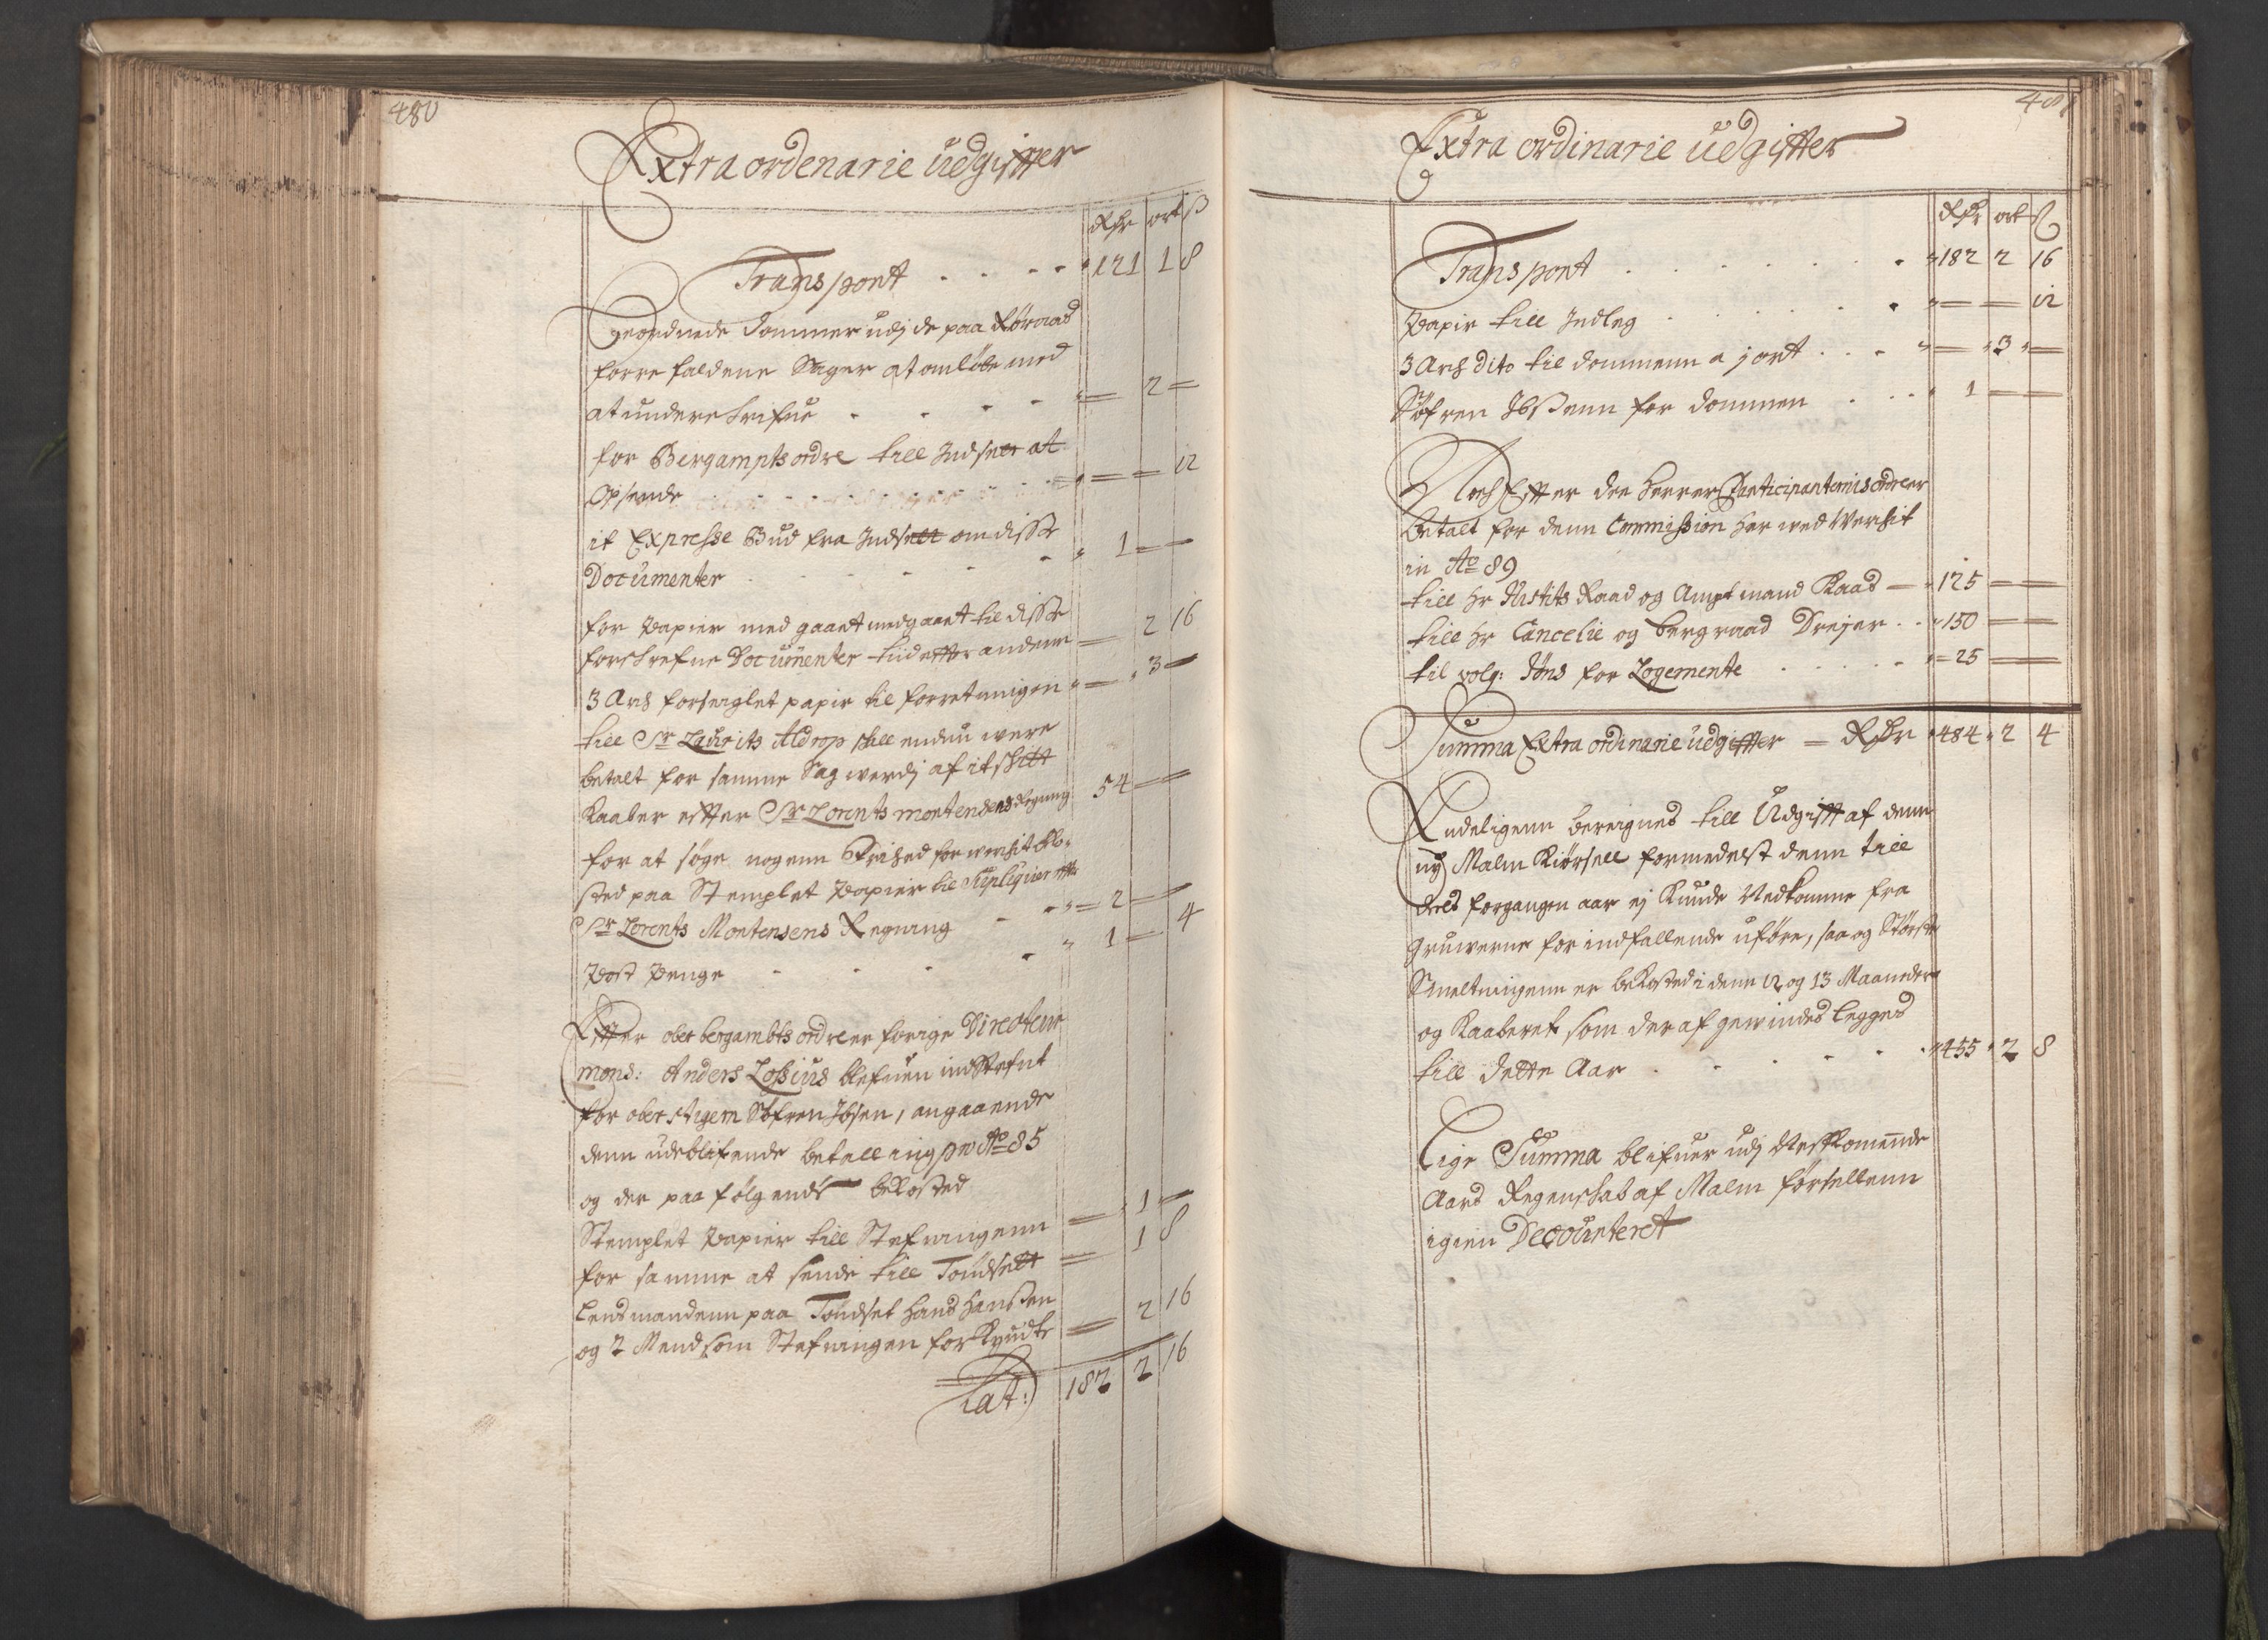 480
Extra ordenarie Udgiffter
Rdr ort ß
Transport 121 1 8
geordnede dommer udj de paa Røraas
forre faldene Sager at omløbe med
at underskrifue 2
for Bergamptsordre till Indsett at
Opsende 12
it Expresse Bud fra Indsett om disse
Documenter 1
for Papier med gaaet medgaaet til disse
forskrefne Documenter tiid effter anden 2 16
3 Ark forseiglet papir til forretningen 3
till Sr Laurits Aldrop skall enduu were
betalt for samme Sag werdj af it skitt
Kaaber effter Sr Lorents Mortensens Regning 54
for at søge nogenn Frihed for werkit
sted paa Stemplet Papier til Supliquer effter
Sr Lorents Mortensens Regning 2
Post Penge 1 4
Effter ober bergambts ordre er forige Directeur
mons: Anders Lossius blefuen indstefnt
for ober stigern Søfren Ibsen, angaaende
denn udeblifende betalling pro Ao 85
og der paa følgende bekosted
Stemplet Papier till Stefningenn 1
for samme at sende till Tøndsett 1 8
Lensmandenn paa Tøndset Hans Hanssen
og 2 Mend som Stefningen forkyndte 2 16
Lat: 182 2 16
481
Extra ordinarie udgiffter
Rdr ort ß
Transport 182 2 16
Papir till Indleg 12
3 Ark dito til dommenn a j ort 3
Søfren Ibssenn for dommen 1
Noch Effter de Herrer Participanternis ordre er
betalt for denn Commission her wed Werkit
in Ao 89
till Hr Justits Raad og Amptmand Kaas 125
till Hr Cancelie og bergraad Dreyer 150
til volg: Jøns for Logemente 25
Summa Extra ordinarie udgiffter Rdr 484 2 4
Endeligenn bereignes till Udgifft af denn
ny Malm Kiørsell formedelst denn till
deels forgangen aar ej Kunde Nedkomme fra
Gruwerne for indfallende uføre, saa og Største
Smeltningenn er bekosted i denn 12 og 13 Maaneder
og Kaaberet som der af gewindes legges
till dette Aar 455 2 8
Lige Summa blifuer udj Nestkomende
Aars Regenskab af Malm førsellenn
igien Decourteret